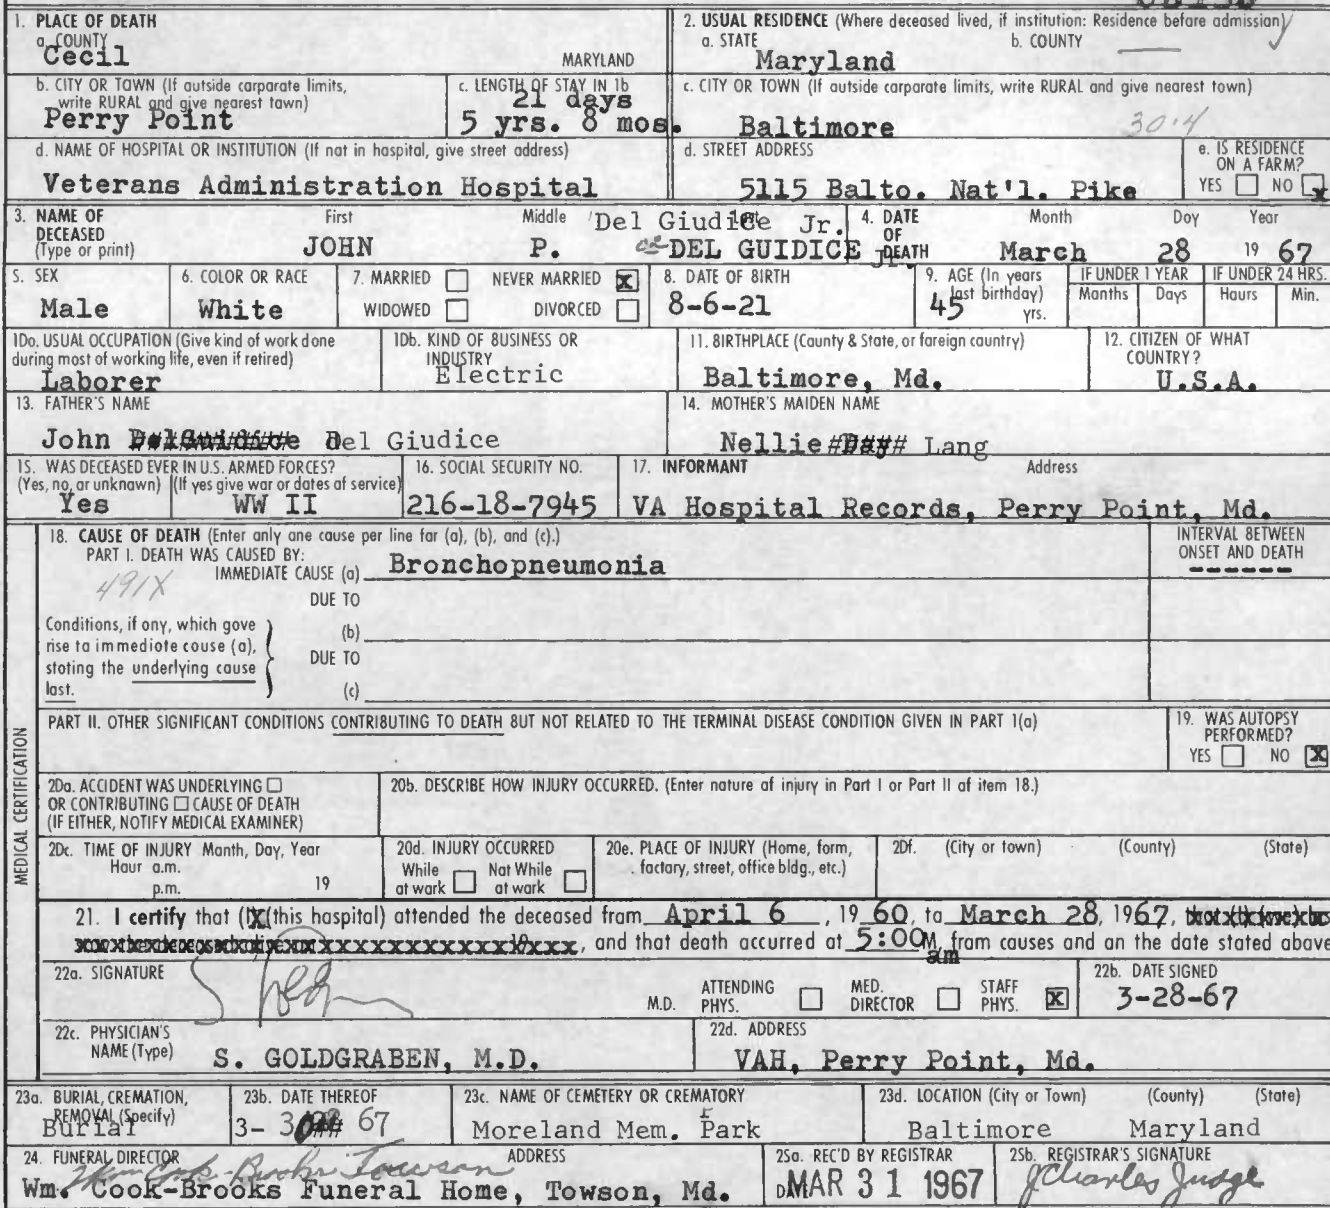 1. PLACE OF DEATH
a. COUNTY
Cecil
MARYLAND
2. USUAL RESIDENCE (Where deceased lived, if institution: Residence before admission)
a. STATE b. COUNTY
Maryland
b. CITY OR TOWN (If outside corporate limits, write RURAL and give nearest town)
Perry Point
c. LENGTH OF STAY IN 1b
21 days
5 yrs. 8 mos.
c. CITY OR TOWN (If outside corporate limits, write RURAL and give nearest town)
Baltimore
30.4
d. NAME OF HOSPITAL OR INSTITUTION (If not in hospital, give street address)
Veterans Administration Hospital
d. STREET ADDRESS
5115 Balto. Nat'l. Pike
e. IS RESIDENCE ON A FARM?
YES NO x
3. NAME OF DECEASED (Type or print)
First Middle Last
Del Giudice Jr.
JOHN P. or DEL GUIDICE Jr.
4. DATE OF DEATH
Month Day Year
March 28 19 67
5. SEX
Male
6. COLOR OR RACE
White
7. MARRIED NEVER MARRIED X
WIDOWED DIVORCED
8. DATE OF BIRTH
8-6-21
9. AGE (In years last birthday)
45 yrs.
IF UNDER 1 YEAR
Months Days
IF UNDER 24 HRS.
Hours Min.
10a. USUAL OCCUPATION (Give kind of work done during most of working life, even if retired)
Laborer
10b. KIND OF BUSINESS OR INDUSTRY
Electric
11. BIRTHPLACE (County & State, or foreign country)
Baltimore, Md.
12. CITIZEN OF WHAT COUNTRY?
U.S.A.
13. FATHER'S NAME
John Del Giudice
14. MOTHER'S MAIDEN NAME
Nellie #Day# Lang
15. WAS DECEASED EVER IN U.S. ARMED FORCES?
(Yes, no, or unknown) (If yes give war or dates of service)
Yes WW II
16. SOCIAL SECURITY NO.
216-18-7945
17. INFORMANT Address
VA Hospital Records, Perry Point, Md.
MEDICAL CERTIFICATION
18. CAUSE OF DEATH (Enter only one cause per line for (a), (b), and (c).)
PART I. DEATH WAS CAUSED BY:
IMMEDIATE CAUSE (a) Bronchopneumonia
491X
DUE TO
(b)
DUE TO
(c)
Conditions, if any, which gave rise to immediate cause (a), stating the underlying cause last.
INTERVAL BETWEEN ONSET AND DEATH
------
PART II. OTHER SIGNIFICANT CONDITIONS CONTRIBUTING TO DEATH BUT NOT RELATED TO THE TERMINAL DISEASE CONDITION GIVEN IN PART 1(a)
19. WAS AUTOPSY PERFORMED?
YES NO X
20a. ACCIDENT WAS UNDERLYING
OR CONTRIBUTING CAUSE OF DEATH
(IF EITHER, NOTIFY MEDICAL EXAMINER)
20b. DESCRIBE HOW INJURY OCCURRED. (Enter nature of injury in Part I or Part II of item 18.)
20c. TIME OF INJURY Month, Day, Year
Hour a.m.
p.m. 19
20d. INJURY OCCURRED
While at work Not While at work
20e. PLACE OF INJURY (Home, form, factory, street, office bldg., etc.)
20f. (City or town) (County) (State)
21. I certify that (this hospital) attended the deceased from April 6, 1960, to March 28, 1967,
and that death occurred at 5:00 am M, from causes and on the date stated above
22a. SIGNATURE
M.D. ATTENDING PHYS. MED. DIRECTOR STAFF PHYS. X
22b. DATE SIGNED
3-28-67
22c. PHYSICIAN'S NAME (Type)
S. GOLDGRABEN, M.D.
22d. ADDRESS
VAH, Perry Point, Md.
23a. BURIAL, CREMATION, REMOVAL (Specify)
Burial
23b. DATE THEREOF
3- 30 67
23c. NAME OF CEMETERY OR CREMATORY
Moreland Mem. Park
23d. LOCATION (City or Town) (County) (State)
Baltimore Maryland
24. FUNERAL DIRECTOR ADDRESS
Wm Cook-Brooks Towson
Wm. Cook-Brooks Funeral Home, Towson, Md.
25a. REC'D BY REGISTRAR
MAR 31 1967
25b. REGISTRAR'S SIGNATURE
J Charles Judge